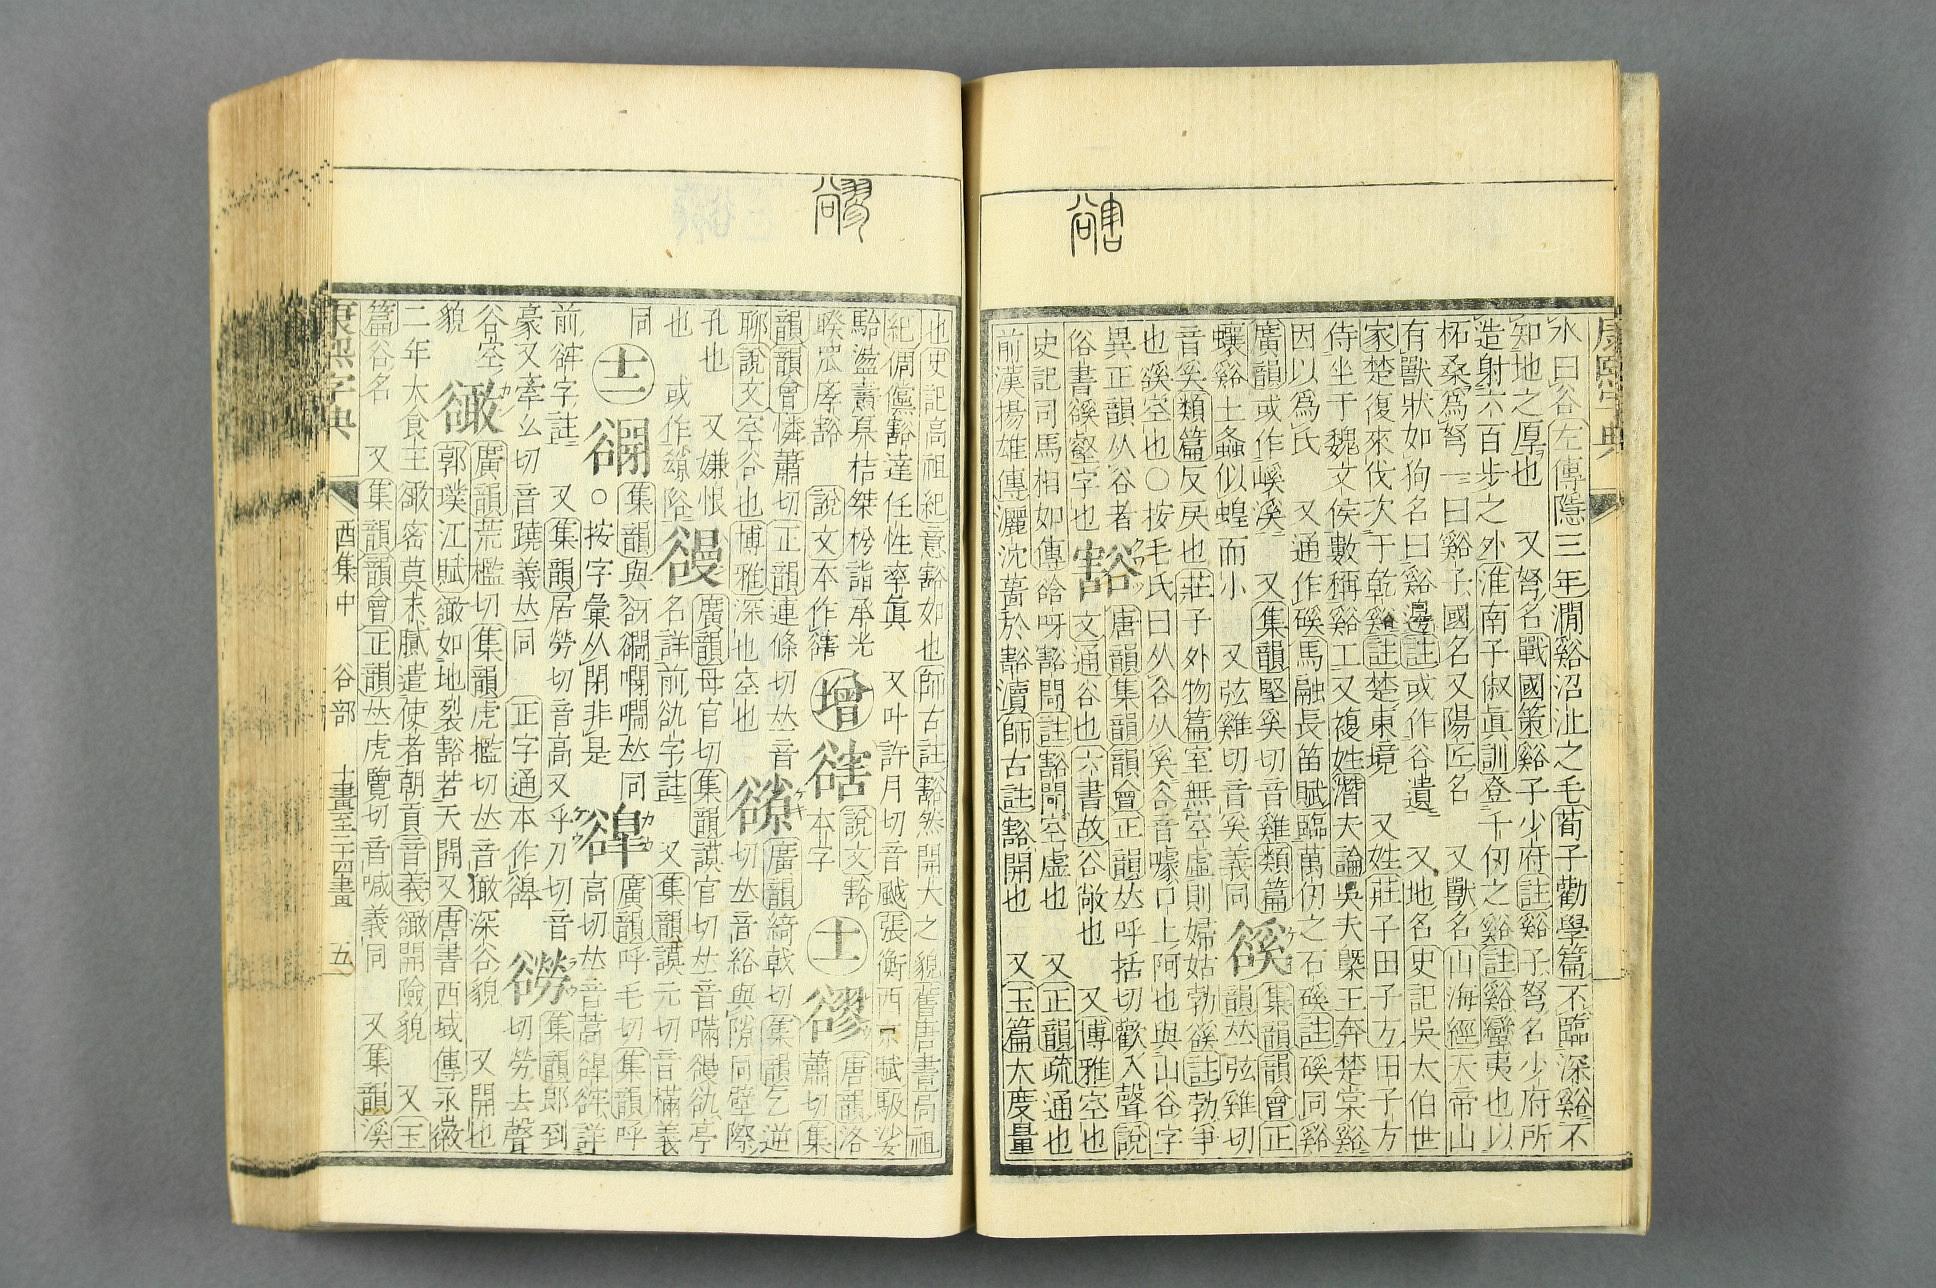 水曰谷左傳隱三年澗谿沼沚之毛荀子勸學篇不臨深谿不
知地之厚也 又弩名戰國策谿子少府註谿子弩名少府所
造射六百步之外淮南子俶眞訓登千仞之谿註谿蠻夷也以
柘桑爲弩一曰谿子國名又陽匠名 又獸名山海經天帝山
有獸狀如狗名曰谿邊註或作谷遺 又地名史記吳太伯世
家楚復來伐次于乾谿註楚東境 又姓莊子田子方田子方
侍坐于魏文侯數稱谿工又複姓潛夫論吳夫槩王奔楚棠谿
因以爲氏 又通作磎馬融長笛賦臨萬仞之石磎註磎同谿
廣韻或作嵠溪 又集韻堅奚切音雞類篇
蠰谿土螽似蝗而小 又弦雞切音奚義同
豀
集韻韻會正
韻𠀤弦雞切
音奚類篇反戾也莊子外物篇室無空虛則婦姑勃豀註勃爭
也豀空也〇按毛氏曰从谷从奚谷音噱口上阿也與山谷字
異正韻从谷者
俗書豀壑字也
豁
唐韻集韻韻會正韻𠀤呼括切歡入聲說
文通谷也六書故谷敞也 又博雅空也
史記司馬相如傳谽呀豁閜註豁閜空虛也 又正韻疏通也
前漢揚雄傳灑沈菑於豁瀆師古註豁開也 又玉篇大度量
也史記高祖紀意豁如也師古註豁然開大之貌舊唐書高祖
紀倜儻豁達任性率眞 又叶許月切音颰張衡西京賦馺娑
駘盪燾奡桔桀枍詣承光
睽罛庨豁 說文本作
增
說文豁
本字
十一
唐韻洛
蕭切集
韻韻會憐蕭切正韻連條切𠀤音
聊說文空谷也博雅深也空也
廣韻綺戟切集韻乞逆
切𠀤音綌與隙同壁際
孔也 又嫌恨
也 或作𨻶俗
廣韻母官切集韻謨官切𠀤音瞞
名詳前 字註 又集韻謨元切音樠義
同
十二
集韻與 𠀤同
〇按字彙从閉非是
廣韻呼毛切集韻呼
高切𠀤音蒿
前 字註 又集韻居勞切音高又乎刀切音
豪又牽幺切音蹺義𠀤同 正字通本作
集韻郎到
切勞去聲
谷空
貌
豃
廣韻荒檻切集韻虎檻切𠀤音㺖深谷貌 又開也
郭璞江賦豃如地裂豁若天開又唐書西域傳永徽
二年大食王豃密莫末膩遣使者朝貢音義豃開險貌 又玉
篇谷名 又集韻韻會正韻𠀤虎覽切音喊義同 又集韻溪
康熙字典 酉集中 谷部 十畫至十四畫 五